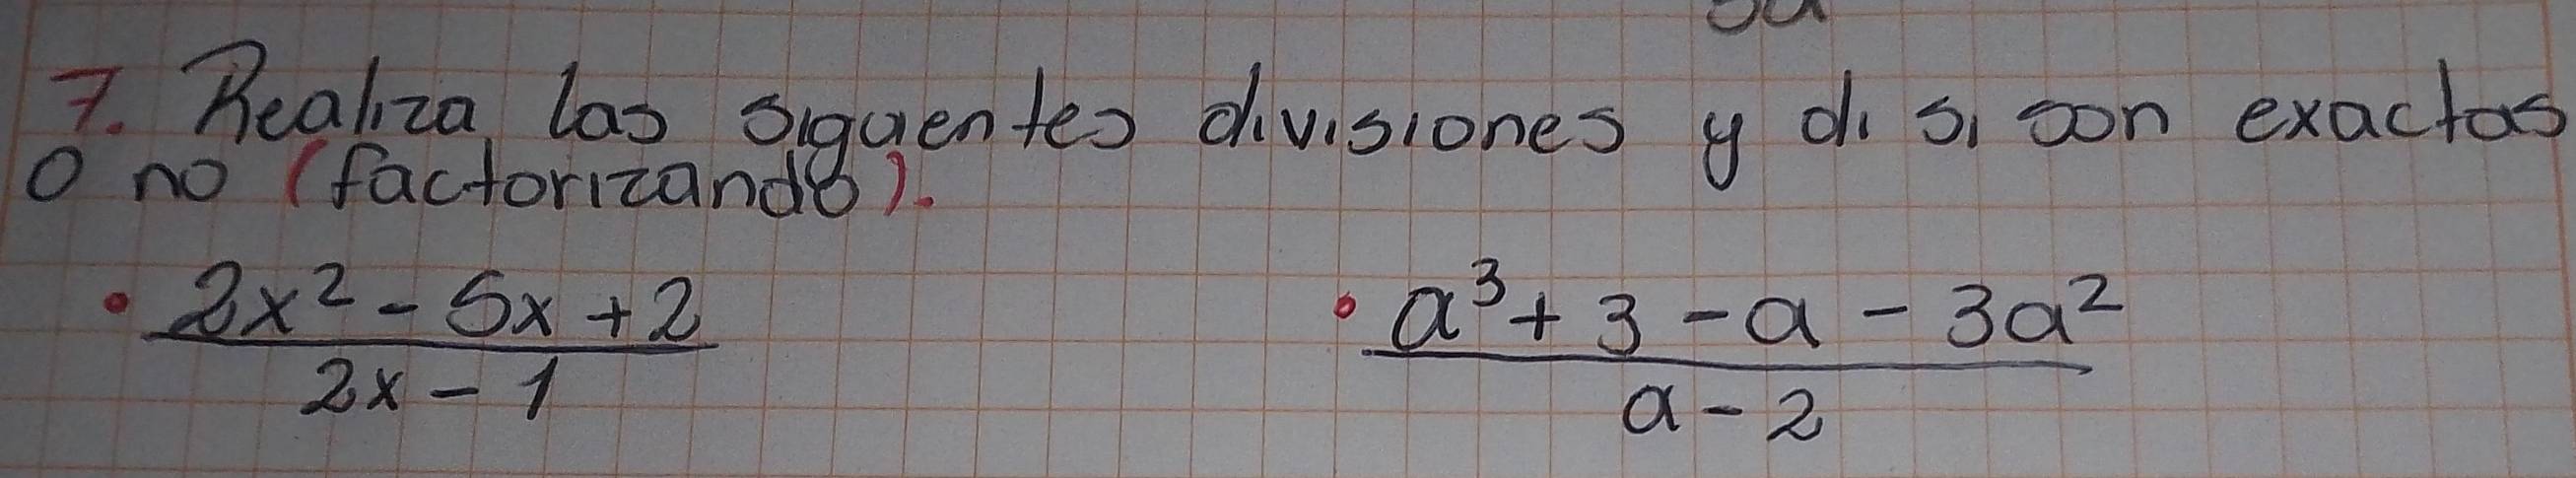 7. Realiza las siguientes divisiones y di si son exactas
o no (factorizando).
• 2x² - 5x + 2 • a³ + 3 - a - 3a²
2x - 1 a - 2